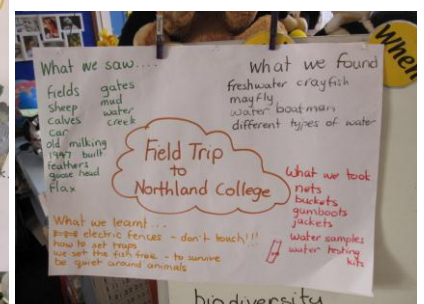 What we saw....
fields gates
sheep mud
calves water
car creek
old milking
1997 built
feathers
goose head
flax
What we found
freshwater crayfish
mayfly
water boatman
different types of water
Field Trip
to
Northland College
What we took
nets
buckets
gumboots
jackets
water samples
water testing
kits
What we learnt...
electric fences - don't touch!!!
how to set traps
we set the fish free - to survive
be quiet around animals
When
biodiversity